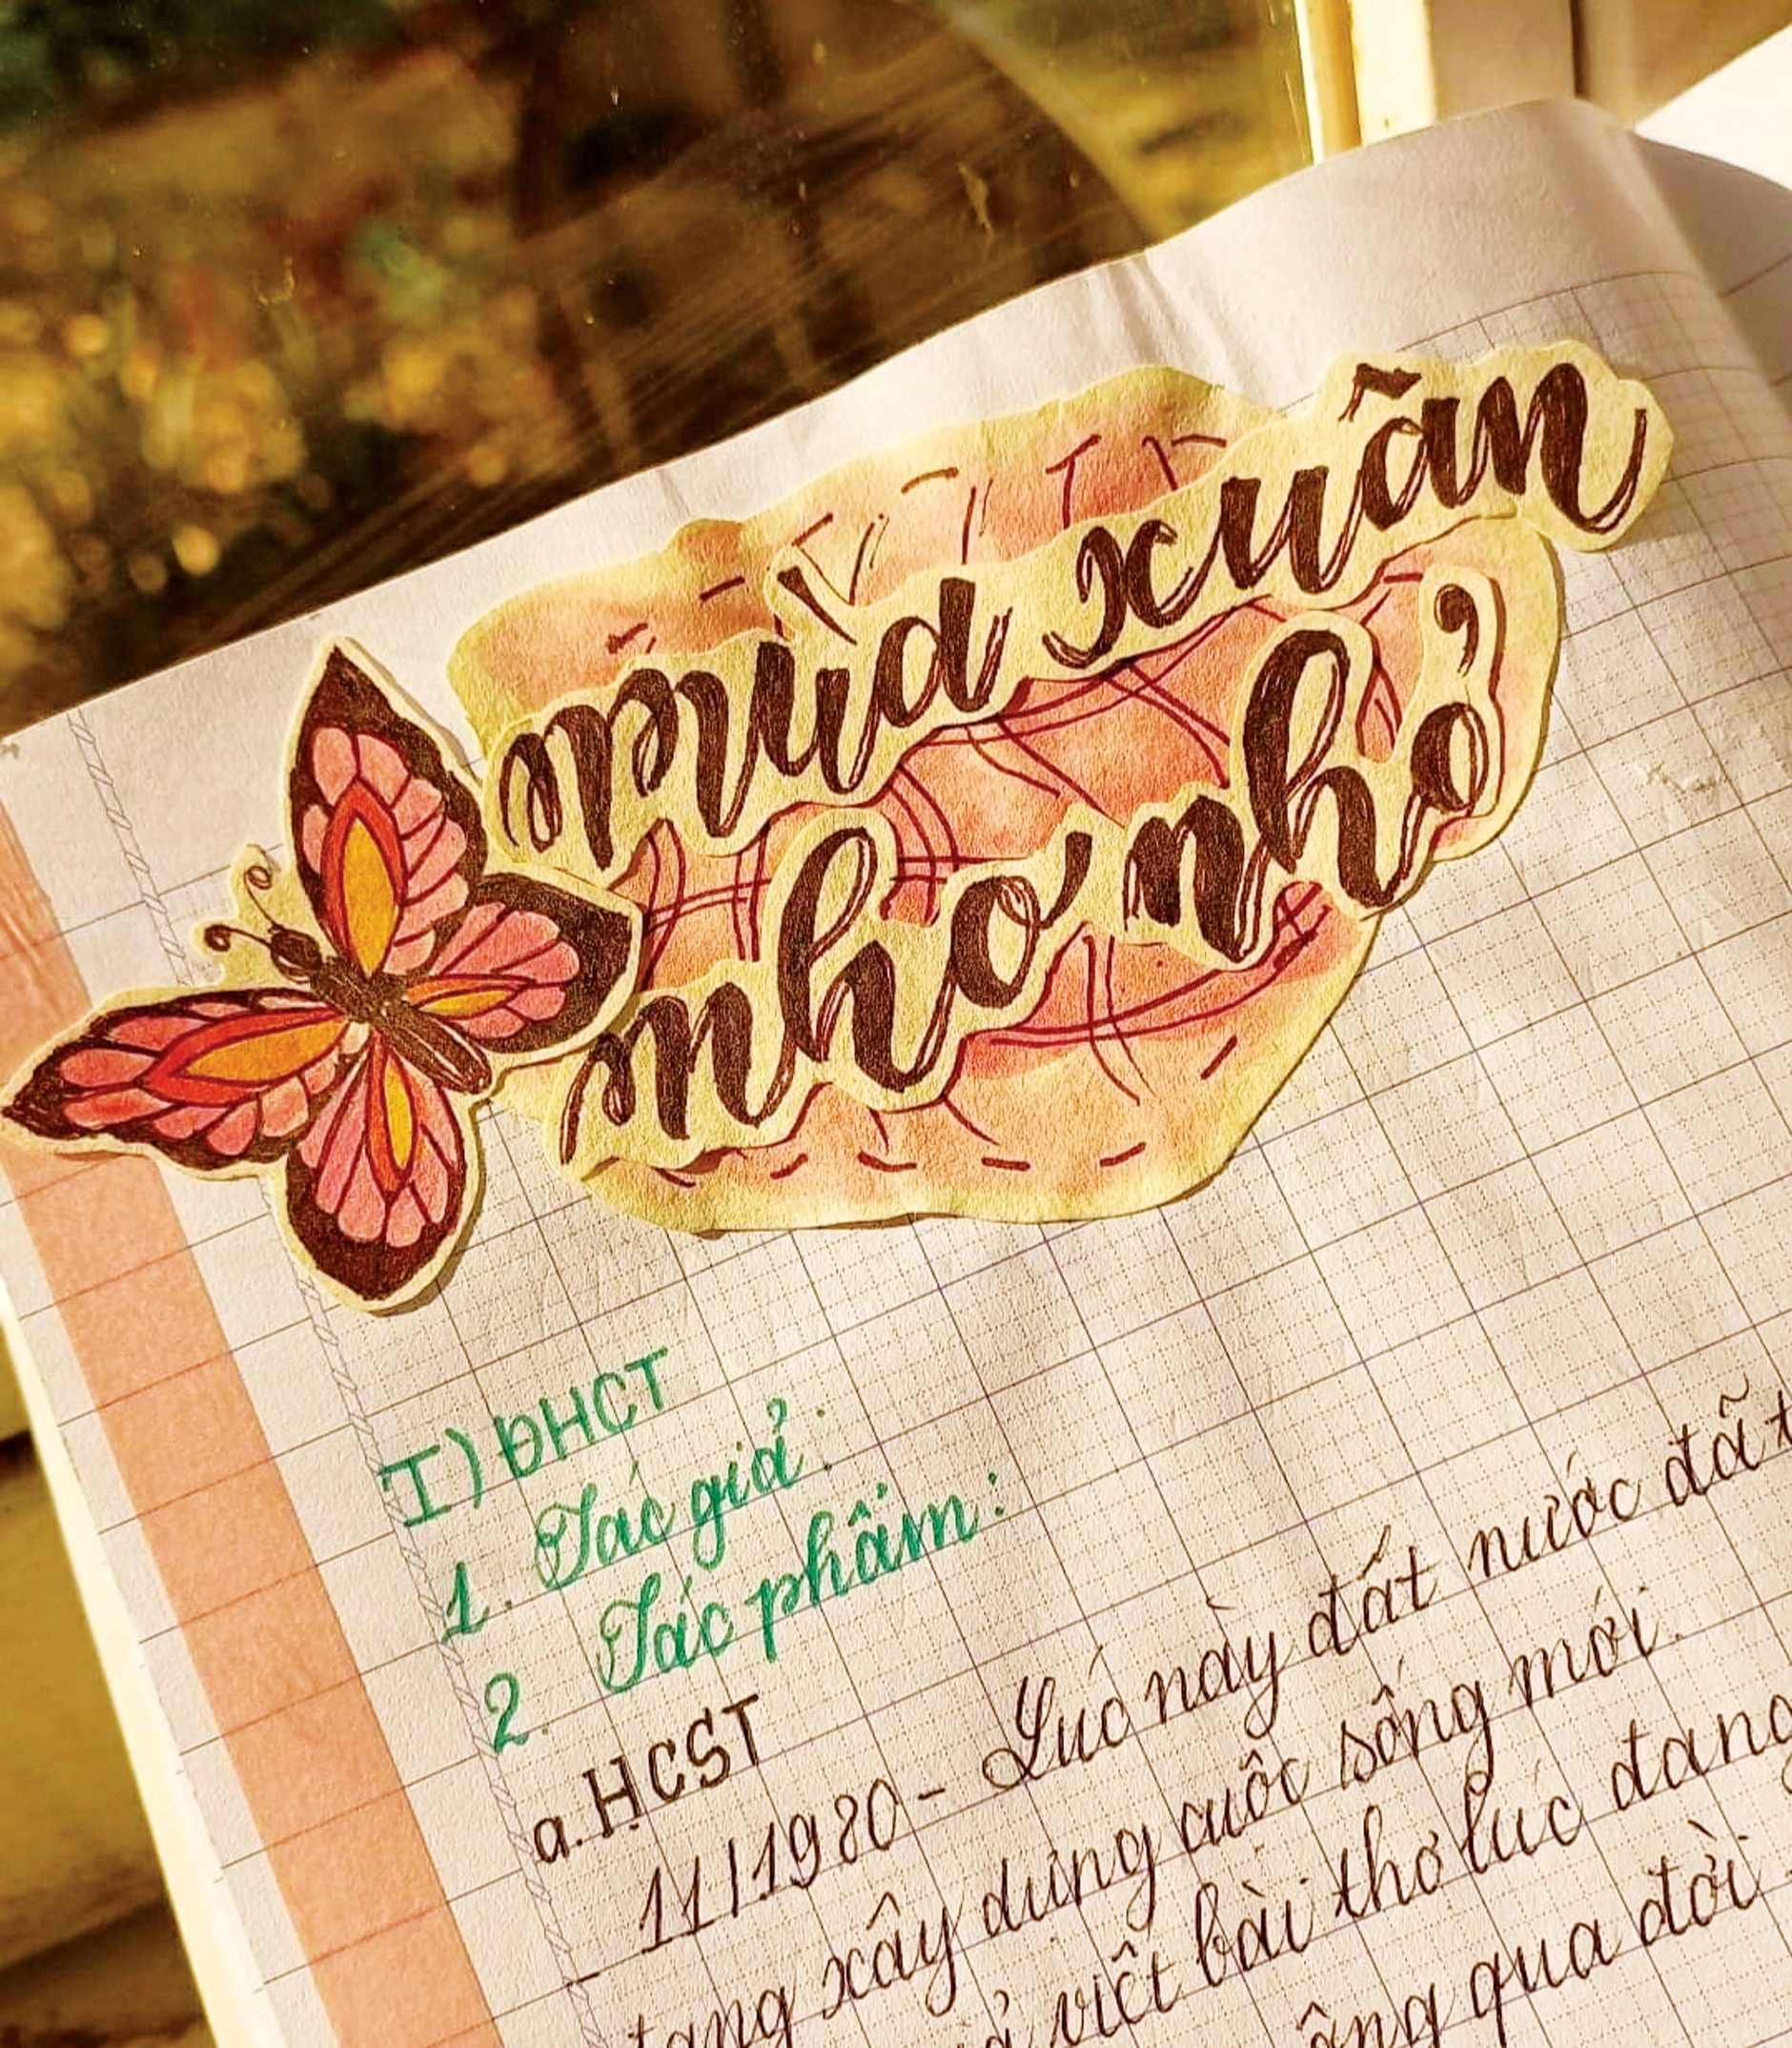 mùa xuân
nho nhỏ
I) ĐHCT
1. Tác giả:
2. Tác phẩm:
a. HCST
11/1980 - Lúc này đất nước đã
đang xây dựng cuộc sống mới.
viết bài thơ lúc đang
ông qua đời